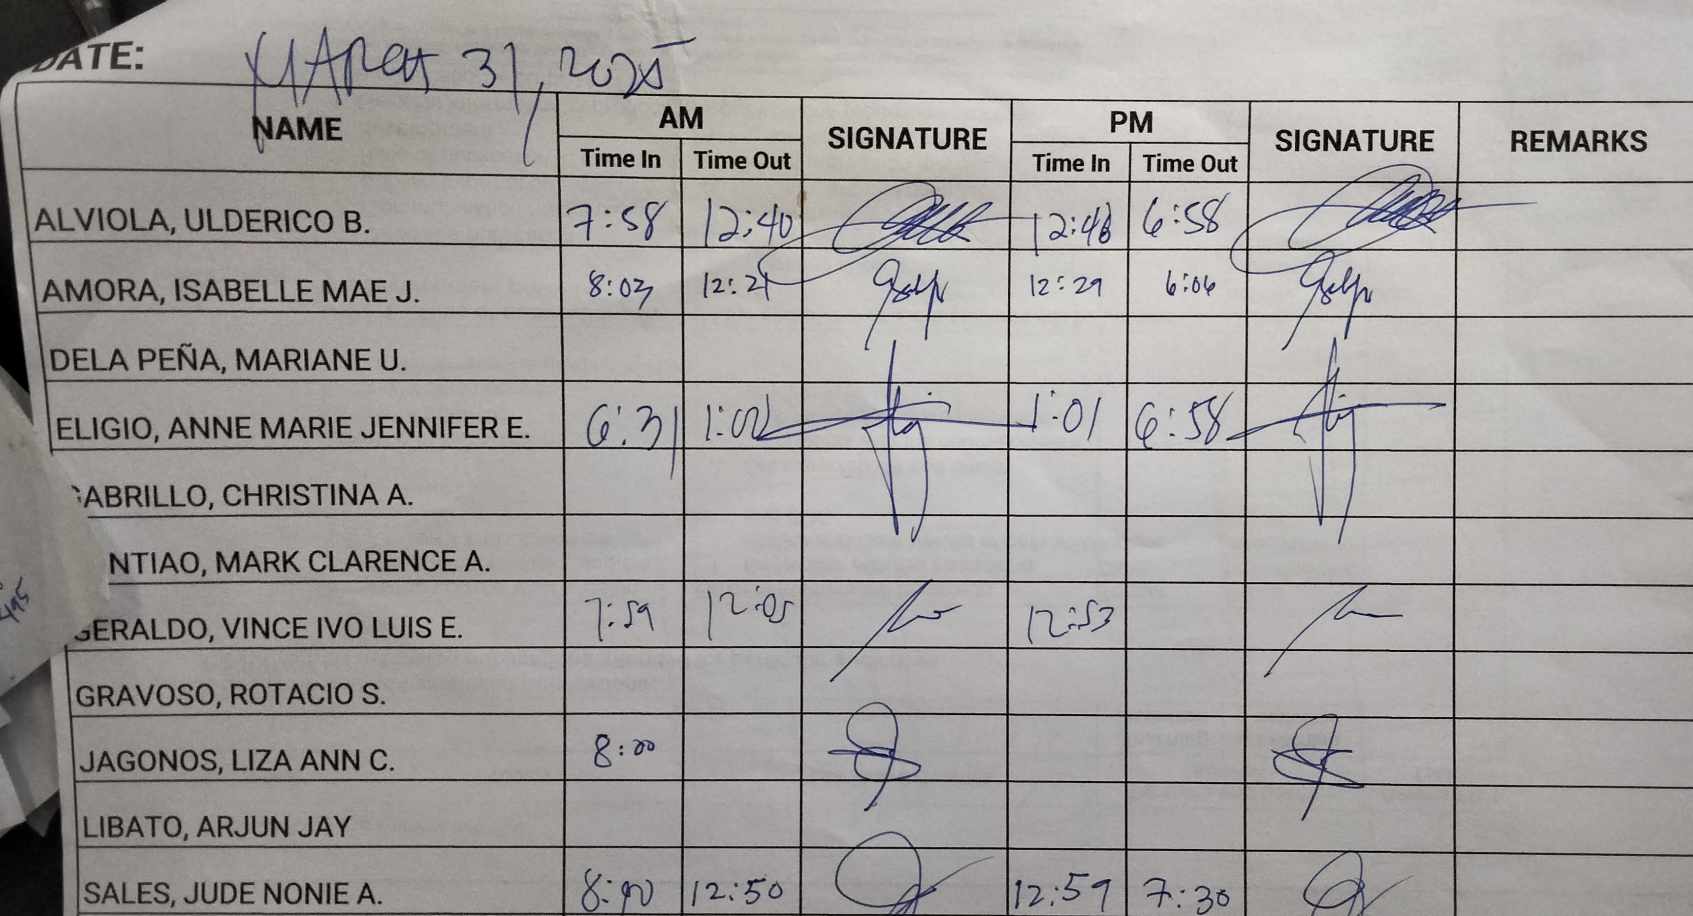 DATE: MARCH 31, 2025
NAME AM SIGNATURE PM SIGNATURE REMARKS
Time In Time Out Time In Time Out
ALVIOLA, ULDERICO B. 7:58 12:40 12:48 6:58
AMORA, ISABELLE MAE J. 8:03 12:21 12:29 6:06
DELA PEÑA, MARIANE U.
ELIGIO, ANNE MARIE JENNIFER E. 6:31 1:01 6:58
GABRILLO, CHRISTINA A.
NTIAO, MARK CLARENCE A.
GERALDO, VINCE IVO LUIS E. 7:59 12:05 12:53
GRAVOSO, ROTACIO S.
JAGONOS, LIZA ANN C. 8:00
LIBATO, ARJUN JAY
SALES, JUDE NONIE A. 12:50 12:59 7:30
495